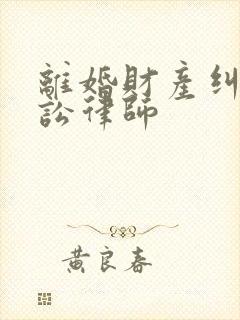 離婚財產糾
訟律師
黃良春